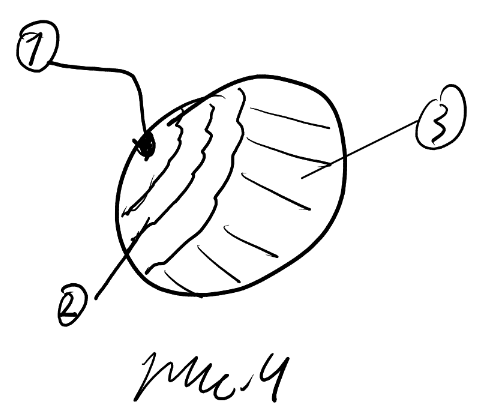 1
3
2
рис. 4